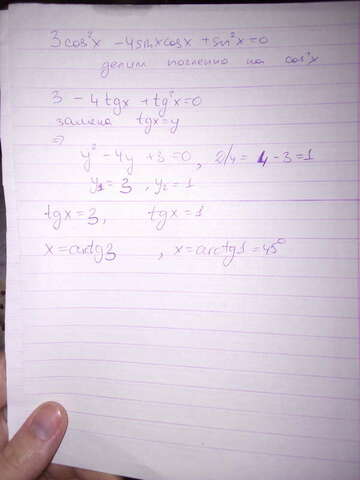 3cos²x - 4sinxcosx + sin²x = 0
делим почленно на cos²x
3 - 4tgx + tg²x = 0
замена tgx = y
⇒
y² - 4y + 3 = 0, D/4 = 4 - 3 = 1
y₁ = 3, y₂ = 1
tgx = 3, tgx = 1
x = arctg3, x = arctg1 = 45°